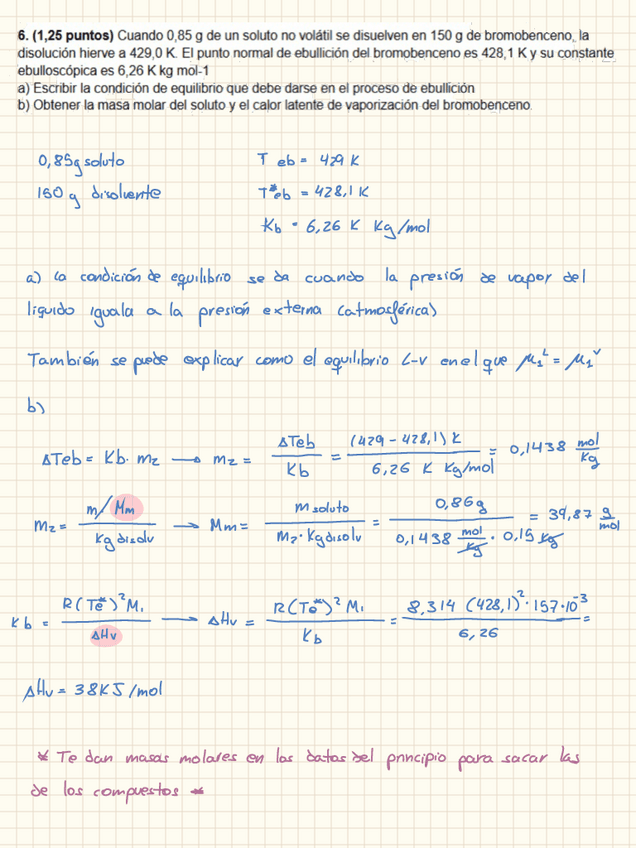 6. (1,25 puntos) Cuando 0,85 g de un soluto no volátil se disuelven en 150 g de bromobenceno, la
disolución hierve a 429,0 K. El punto normal de ebullición del bromobenceno es 428,1 K y su constante
ebulloscópica es 6,26 K kg mol-1
a) Escribir la condición de equilibrio que debe darse en el proceso de ebullición
b) Obtener la masa molar del soluto y el calor latente de vaporización del bromobenceno
0,85g soluto T eb = 429 K
150 g disolvente T*eb = 428,1 K
Kb = 6,26 K Kg/mol
a) La condición de equilibrio se da cuando la presión de vapor del
líquido iguala a la presión externa (atmosférica)
También se puede explicar como el equilibrio L-V en el que μ₁ᴸ = μ₁ⱽ
b)
ΔTeb = Kb · m₂ → m₂ = ΔTeb / Kb = (429 - 428,1) K / 6,26 K Kg/mol = 0,1438 mol/Kg
m₂ = m/Mm / Kg disolv → Mm = m soluto / m₂ · Kg disolv = 0,86g / 0,1438 mol/Kg · 0,15 Kg = 39,87 g/mol
Kb = R(Te*)² M₁ / ΔHv → ΔHv = R(Te*)² M₁ / Kb = 8,314 (428,1)² · 157·10⁻³ / 6,26 =
ΔHv = 38KJ/mol
* Te dan masas molares en los datos del principio para sacar las
de los compuestos *